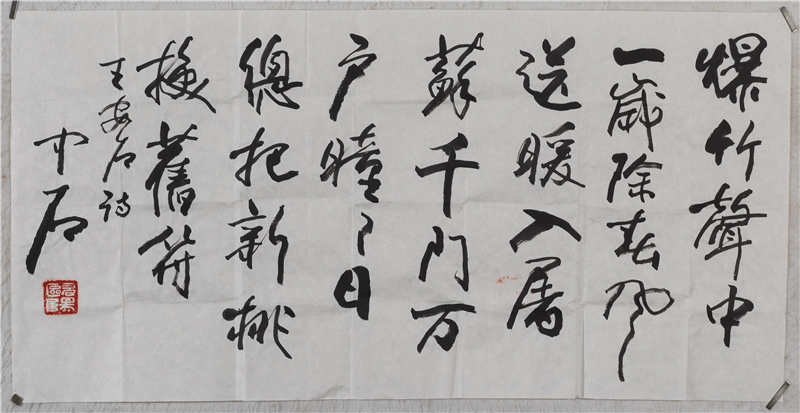 爆竹聲中
一歲除春風
送暖入屠
蘇千門万
户曈〻日
總把新桃
換舊符
王安石詩
中石